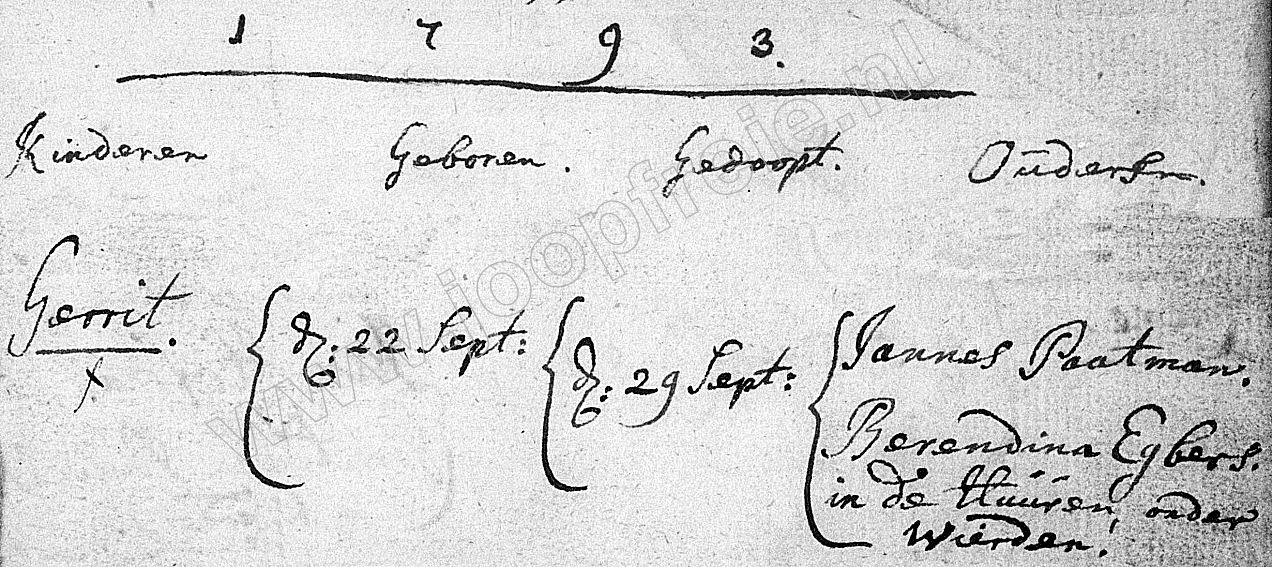 1 7 9 3.
Kinderen Geboren. Gedoopt. Ouders.
Gerrit. dz: 22 Sept: dz: 29 Sept: Jannes Paatman.
Berendina Egbers.
in de Huuren, onder
Wierden.
www.joopfroie.nl